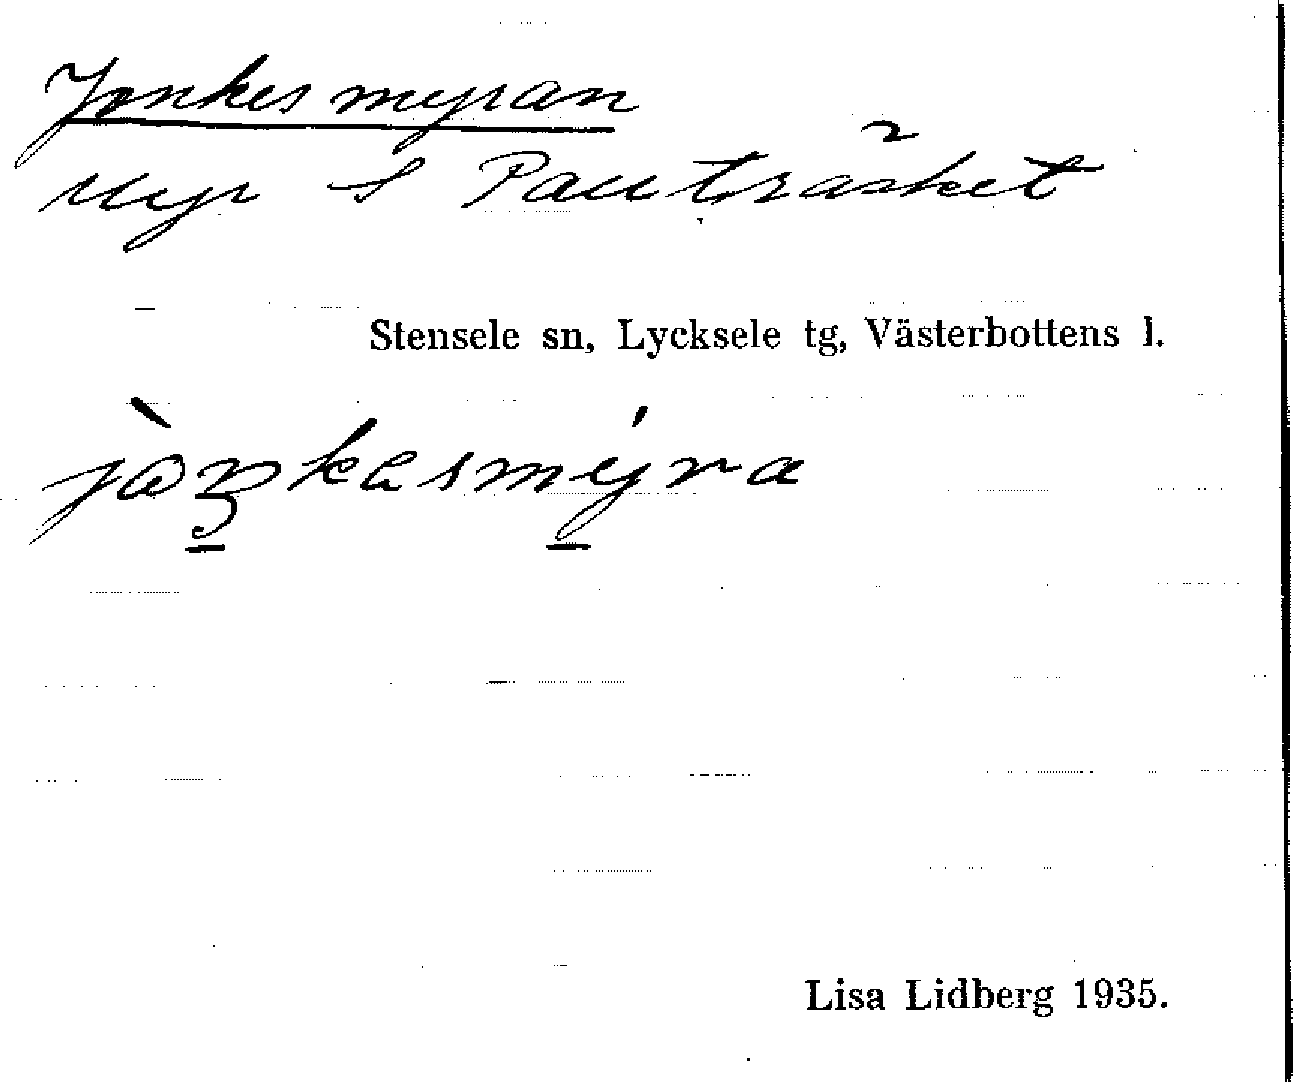 Jonkesmyran
Myr S Pauträsket
Stensele sn, Lycksele tg, Västerbottens l.
jòŋkesmýra
Lisa Lidberg 1935.